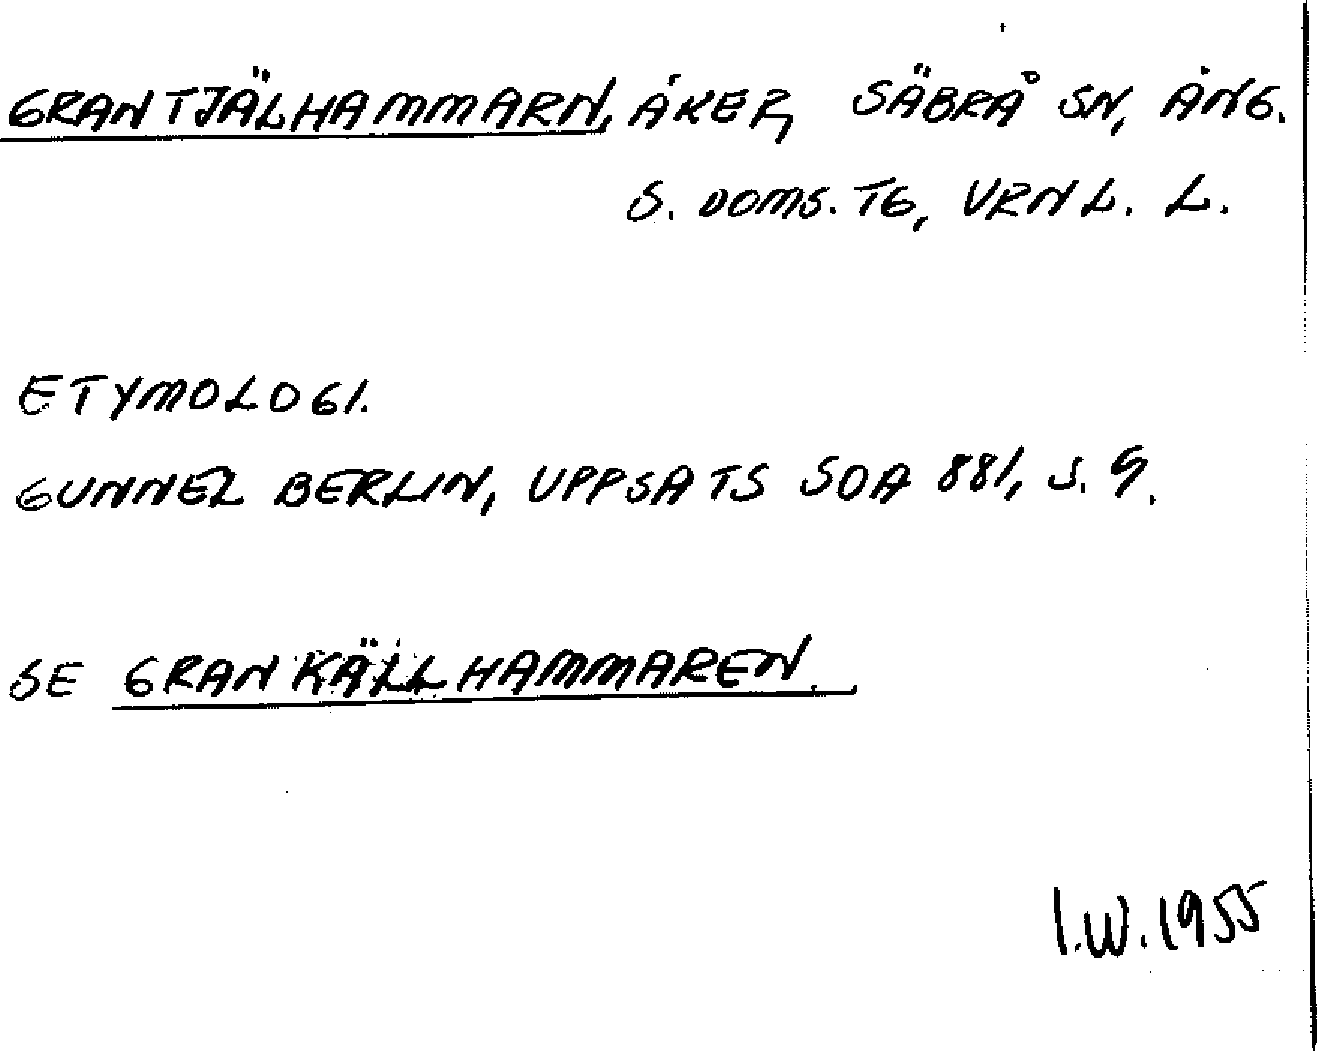 GRANTJÄLHAMMARN, ÅKER, SÄBRÅ SN, ÅNG.
S. DOMS. TG, VRNL. L.
ETYMOLOGI.
GUNNEL BERLIN, UPPSATS SOA 881, S. 9.
SE GRANKÄLLHAMMAREN.
I.W. 1955